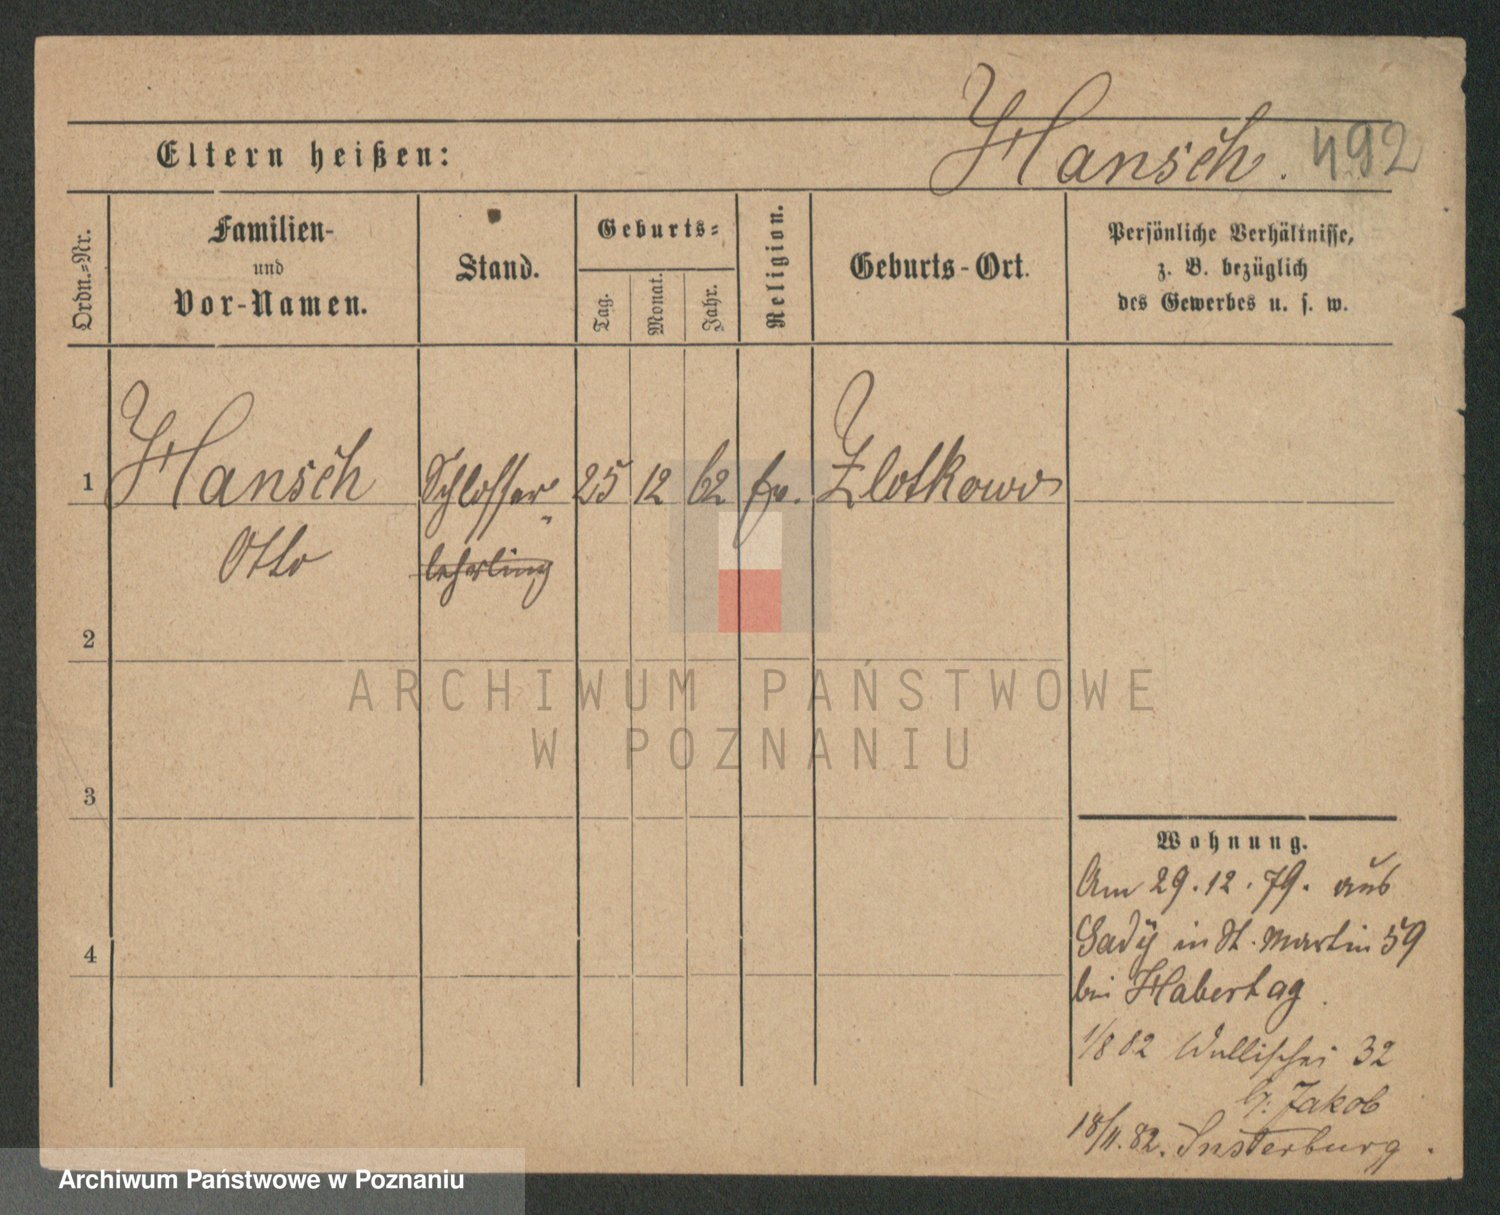 Hansch. 492
Eltern heißen:
Ordn.=Nr.
Familien-
und
Vor-Namen.
Stand.
Geburts=
Tag.
Monat.
Jahr.
Religion.
Geburts-Ort.
Persönliche Verhältnisse,
z. B. bezüglich
des Gewerbes u. s. w.
1 Hansch Schlosser 25 12 62 Zlotkowo
Otto lehrling
2
3
4
Wohnung.
Am 29.12.79. aus
in St. Martin 59
bei Habertag.
1/8 82 Wallischei 32
b: Jakob
18/11.82. Insterburg.
ARCHIWUM PAŃSTWOWE
W POZNANIU
Archiwum Państwowe w Poznaniu